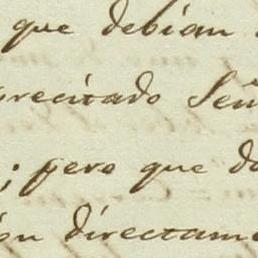 que debian
precitado Señ
; pero que d
on directam